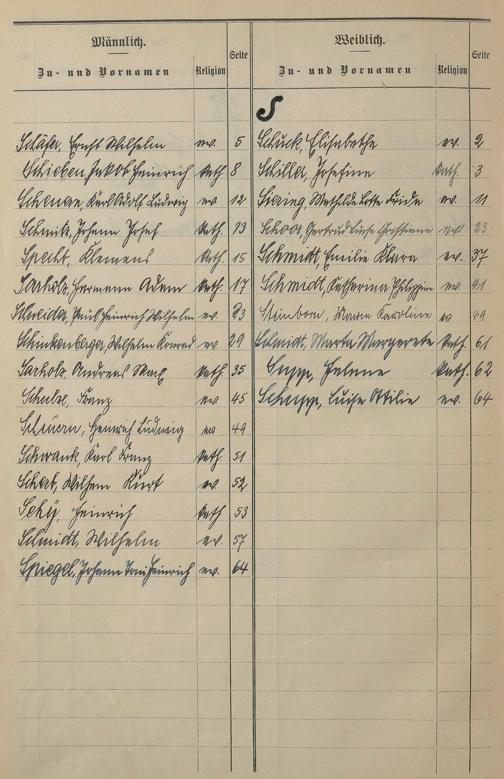 Männlich.
Zu- und Vornamen Religion Seite
Schäfer, Ernst Wilhelm ev. 5
Schieben Jakob Heinrich kath 8
Karl Adolf Ludwig ev 12
Schmitz, Johann Josef kath. 13
Specht, Klemens kath 15
Sarholz, Hermann Adam kath. 17
Schneider, Paul Heinrich Wilhelm ev 23
Schinkenberger, Wilhelm Konrad ev 29
Sarholz, Andreas kath 35
Schulze, Franz ev 45
Scheuern, Heinrich Ludwig ev 49
Schwank, Karl Franz kath. 51
Wilhelm Kurt ev 52
Heinrich kath 53
Schmidt, Wilhelm ev. 57
Spiegel, Johann Heinrich ev. 64
Weiblich.
Zu- und Vornamen Religion Seite
S
Schuck, Elisabethe ev. 2
Josefine kath. 3
Mathilde ev. 11
Gertrud ev 23
Schmidt, Emilie Klara ev. 37
Schmidt, Katharina Philippine ev 41
Steinborn, Maria Karoline ev 49
Schmidt, Marta Margarete kath. 61
kath. 62
Schupp, Luise Ottilie ev. 64